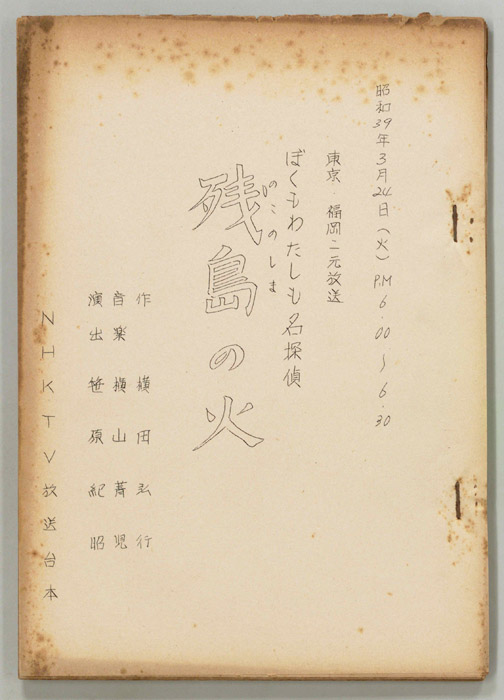 昭和39年3月24日（火）P.M 6.00〜6.30
東京 福岡二元放送
ぼくもわたしも名探偵
のこのしま
残島の火
作 横田弘行
音楽 横山菁児
演出 笹原紀昭
NHKTV放送台本